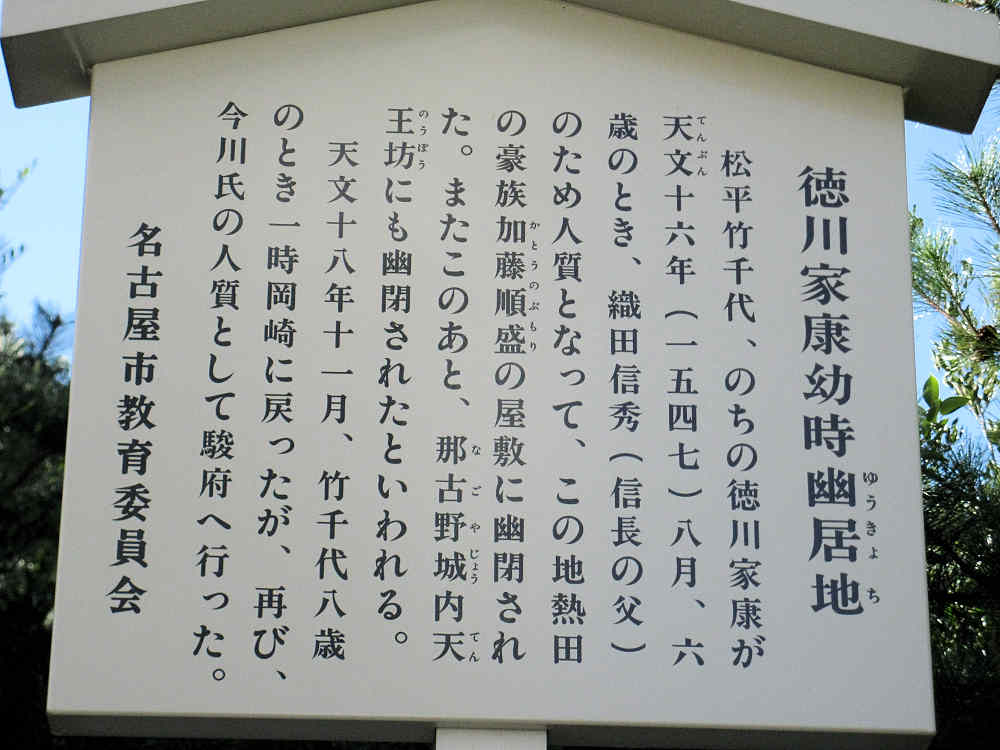 徳川家康幼時幽居地
ゆうきょち
松平竹千代、のちの徳川家康が
天文十六年(一五四七)八月、六
てんぶん
歳のとき、織田信秀(信長の父)
のため人質となって、この地熱田
の豪族加藤順盛の屋敷に幽閉され
かとうのぶもり
た。またこのあと、那古野城内天
なごやじょう てん
王坊にも幽閉されたといわれる。
のうぼう
天文十八年十一月、竹千代八歳
のとき一時岡崎に戻ったが、再び、
今川氏の人質として駿府へ行った。
名古屋市教育委員会